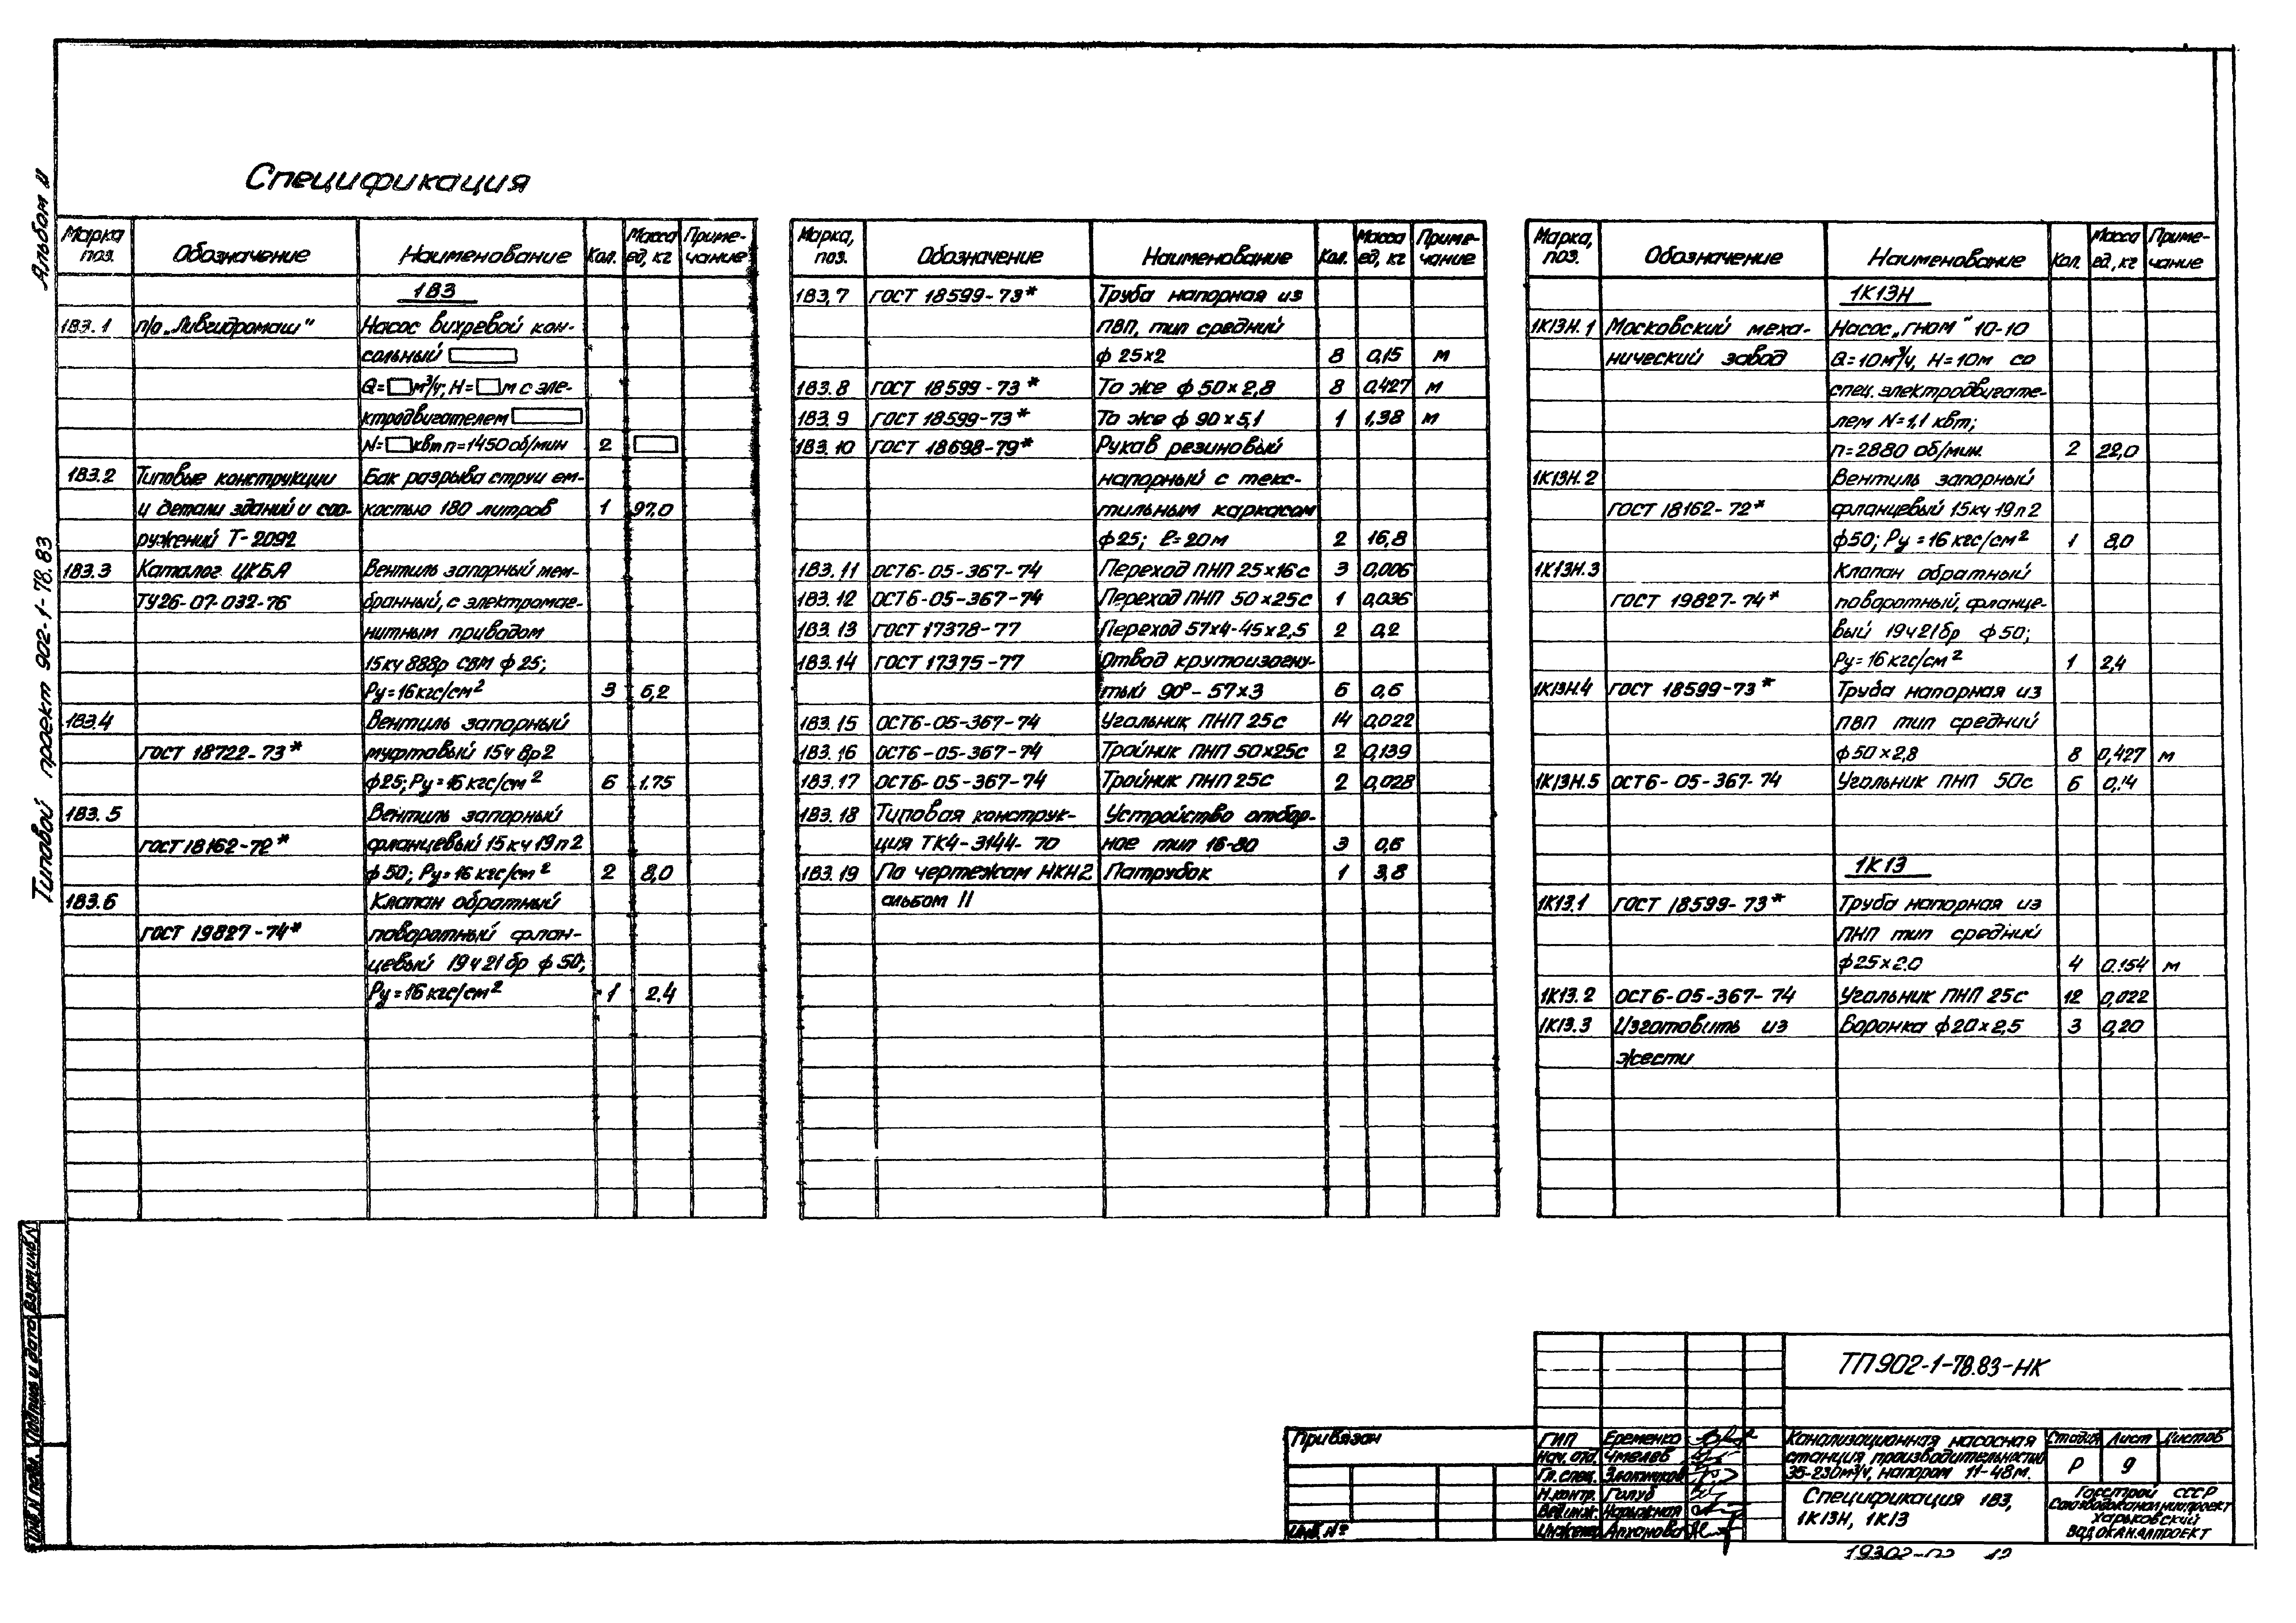 Альбом II
Типовой проект 902-1-78.83
Спецификация
Марка поз. Обозначение Наименование Кол. Масса ед, кг Примечание
1В3
1В3.1 п/о „Ливгидромаш" Насос вихревой кон-
сольный
Q= м³/ч; Н= м с эле-
ктродвигателем
N= квт п=1450 об/мин 2
1В3.2 Типовые конструкции Бак разрыва струи ем-
и детали зданий и соо- костью 180 литров 1 97.0
ружений Т-2092
1В3.3 Каталог ЦКБА Вентиль запорный мем-
ТУ26-07-032-76 бранный, с электромаг-
нитным приводом
15кч 888р СВМ ф 25;
Ру=16кгс/см² 3 6,2
1В3.4 Вентиль запорный
ГОСТ 18722-73* муфтовый 15ч 8р2
ф25; Ру=16 кгс/см² 6 1.75
1В3.5 Вентиль запорный
ГОСТ 18162-72* фланцевый 15кч 19п2
ф50; Ру=16 кгс/см² 2 8,0
1В3.6 Клапан обратный
ГОСТ 19827-74* поворотный флан-
цевый 19ч 21бр ф 50;
Ру=16кгс/см² 1 2.4
Марка, поз. Обозначение Наименование Кол. Масса ед, кг Примечание
1В3,7 ГОСТ 18599-73* Труба напорная из
ПВП, тип средний
ф 25х2 8 0,15 м
1В3.8 ГОСТ 18599-73* То же ф 50х2,8 8 0,427 м
1В3.9 ГОСТ 18599-73* То же ф 90х5,1 1 1,38 м
1В3.10 ГОСТ 18698-79* Рукав резиновый
напорный с текс-
тильным каркасом
ф25; ℓ=20м 2 16,8
1В3.11 ОСТ6-05-367-74 Переход ПНП 25х16с 3 0,006
1В3.12 ОСТ6-05-367-74 Переход ПНП 50х25с 1 0,036
1В3.13 ГОСТ 17378-77 Переход 57х4-45х2,5 2 0,2
1В3.14 ГОСТ 17375-77 Отвод крутоизогну-
тый 90°-57х3 6 0,6
1В3.15 ОСТ6-05-367-74 Угольник ПНП 25с 14 0,022
1В3.16 ОСТ6-05-367-74 Тройник ПНП 50х25с 2 0,139
1В3.17 ОСТ6-05-367-74 Тройник ПНП 25с 2 0,028
1В3.18 Типовая конструк- Устройство отбор-
ция ТК4-3144-70 ное тип 16-80 3 0,6
1В3.19 По чертежам НКН2 Патрубок 1 3,8
альбом II
Марка, поз. Обозначение Наименование Кол. Масса ед, кг Примечание
1К13Н
1К13Н.1 Московский меха- Насос „ГНОМ" 10-10
нический завод Q=10м³/ч, Н=10м со
спец. электродвигате-
лем N=1,1 квт;
п=2880 об/мин. 2 22,0
1К13Н.2 Вентиль запорный
ГОСТ 18162-72* фланцевый 15кч 19п2
ф50; Ру=16кгс/см² 1 8,0
1К13Н.3 Клапан обратный
ГОСТ 19827-74* поворотный, фланце-
вый 19ч21бр ф50;
Ру=16кгс/см² 1 2,4
1К13Н.4 ГОСТ 18599-73* Труба напорная из
ПВП тип средний
ф50х2,8 8 0,427 м
1К13Н.5 ОСТ6-05-367-74 Угольник ПНП 50с 6 0,14
1К13
1К13.1 ГОСТ 18599-73* Труба напорная из
ПНП тип средний
ф25х2.0 4 0.154 м
1К13.2 ОСТ6-05-367-74 Угольник ПНП 25с 12 0,022
1К13.3 Изготовить из Воронка ф20х2,5 3 0,20
жести
Инв. N подл. Подпись и дата Взам инв N
ТП 902-1-78.83-НК
Привязан
Инв. №
ГИП Еременко
Нач. отд. Чмелев
Гл. спец.
Н.контр. Голуб
Вед.инж. Нарыжная
Инженер
Канализационная насосная
станция производительностью
35-230м³/ч, напором 11-48м.
Стадия Лист Листов
Р 9
Спецификация 1В3,
1К13Н, 1К13
Госстрой СССР
Союзводоканалниипроект
Харьковский
Водоканалпроект
19302-02 12